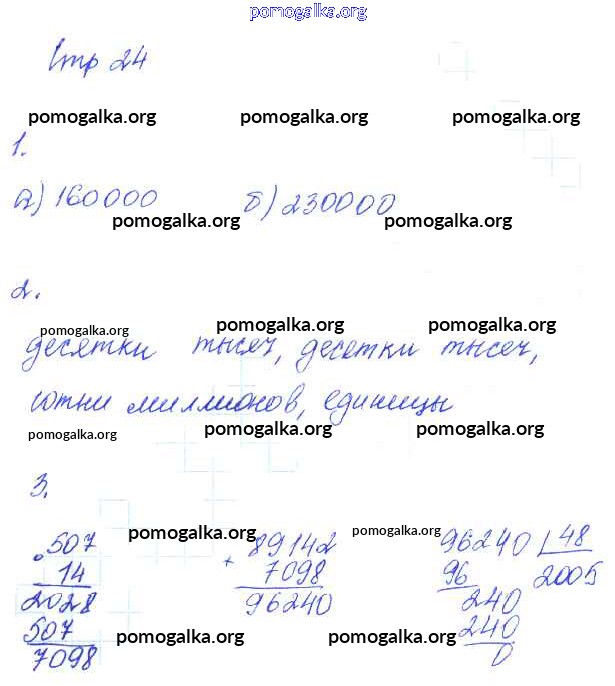 pomogalka.org
Стр 24
pomogalka.org pomogalka.org pomogalka.org
1.
а) 160000 б) 230000
pomogalka.org pomogalka.org
2.
pomogalka.org pomogalka.org pomogalka.org
десятки тысяч, десетки тысеч,
сотни миллионов, единицы
pomogalka.org pomogalka.org pomogalka.org
3.
pomogalka.org pomogalka.org
507 + 89142 96240 48
14 7098 96 2005
2028 96240 240
507 240
7098 0
pomogalka.org pomogalka.org